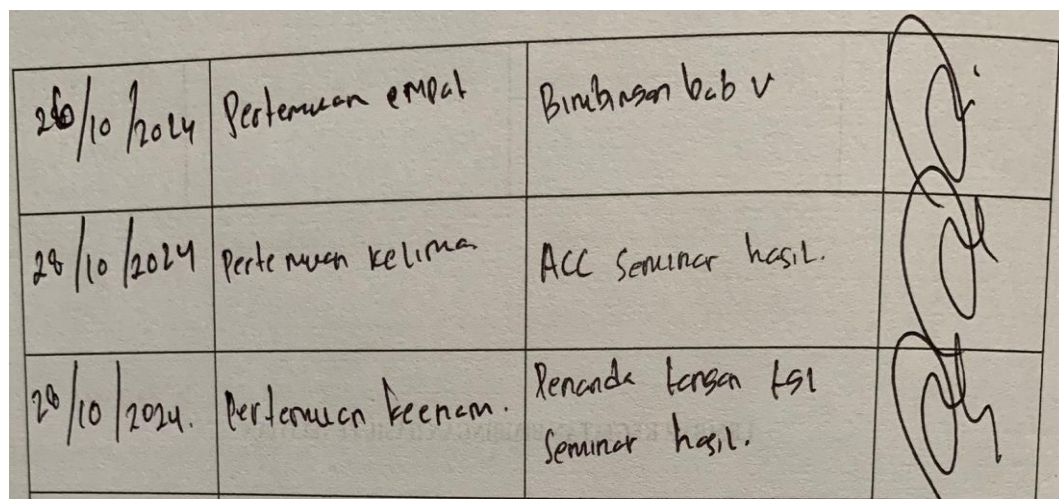 /10/2024
Pertemuan empat
Bimbingan bab V
28/10/2024
Pertemuan kelima
ACC Seminar hasil.
28/10/2024.
Pertemuan keenam.
Penanda tangan
Seminar hasil.